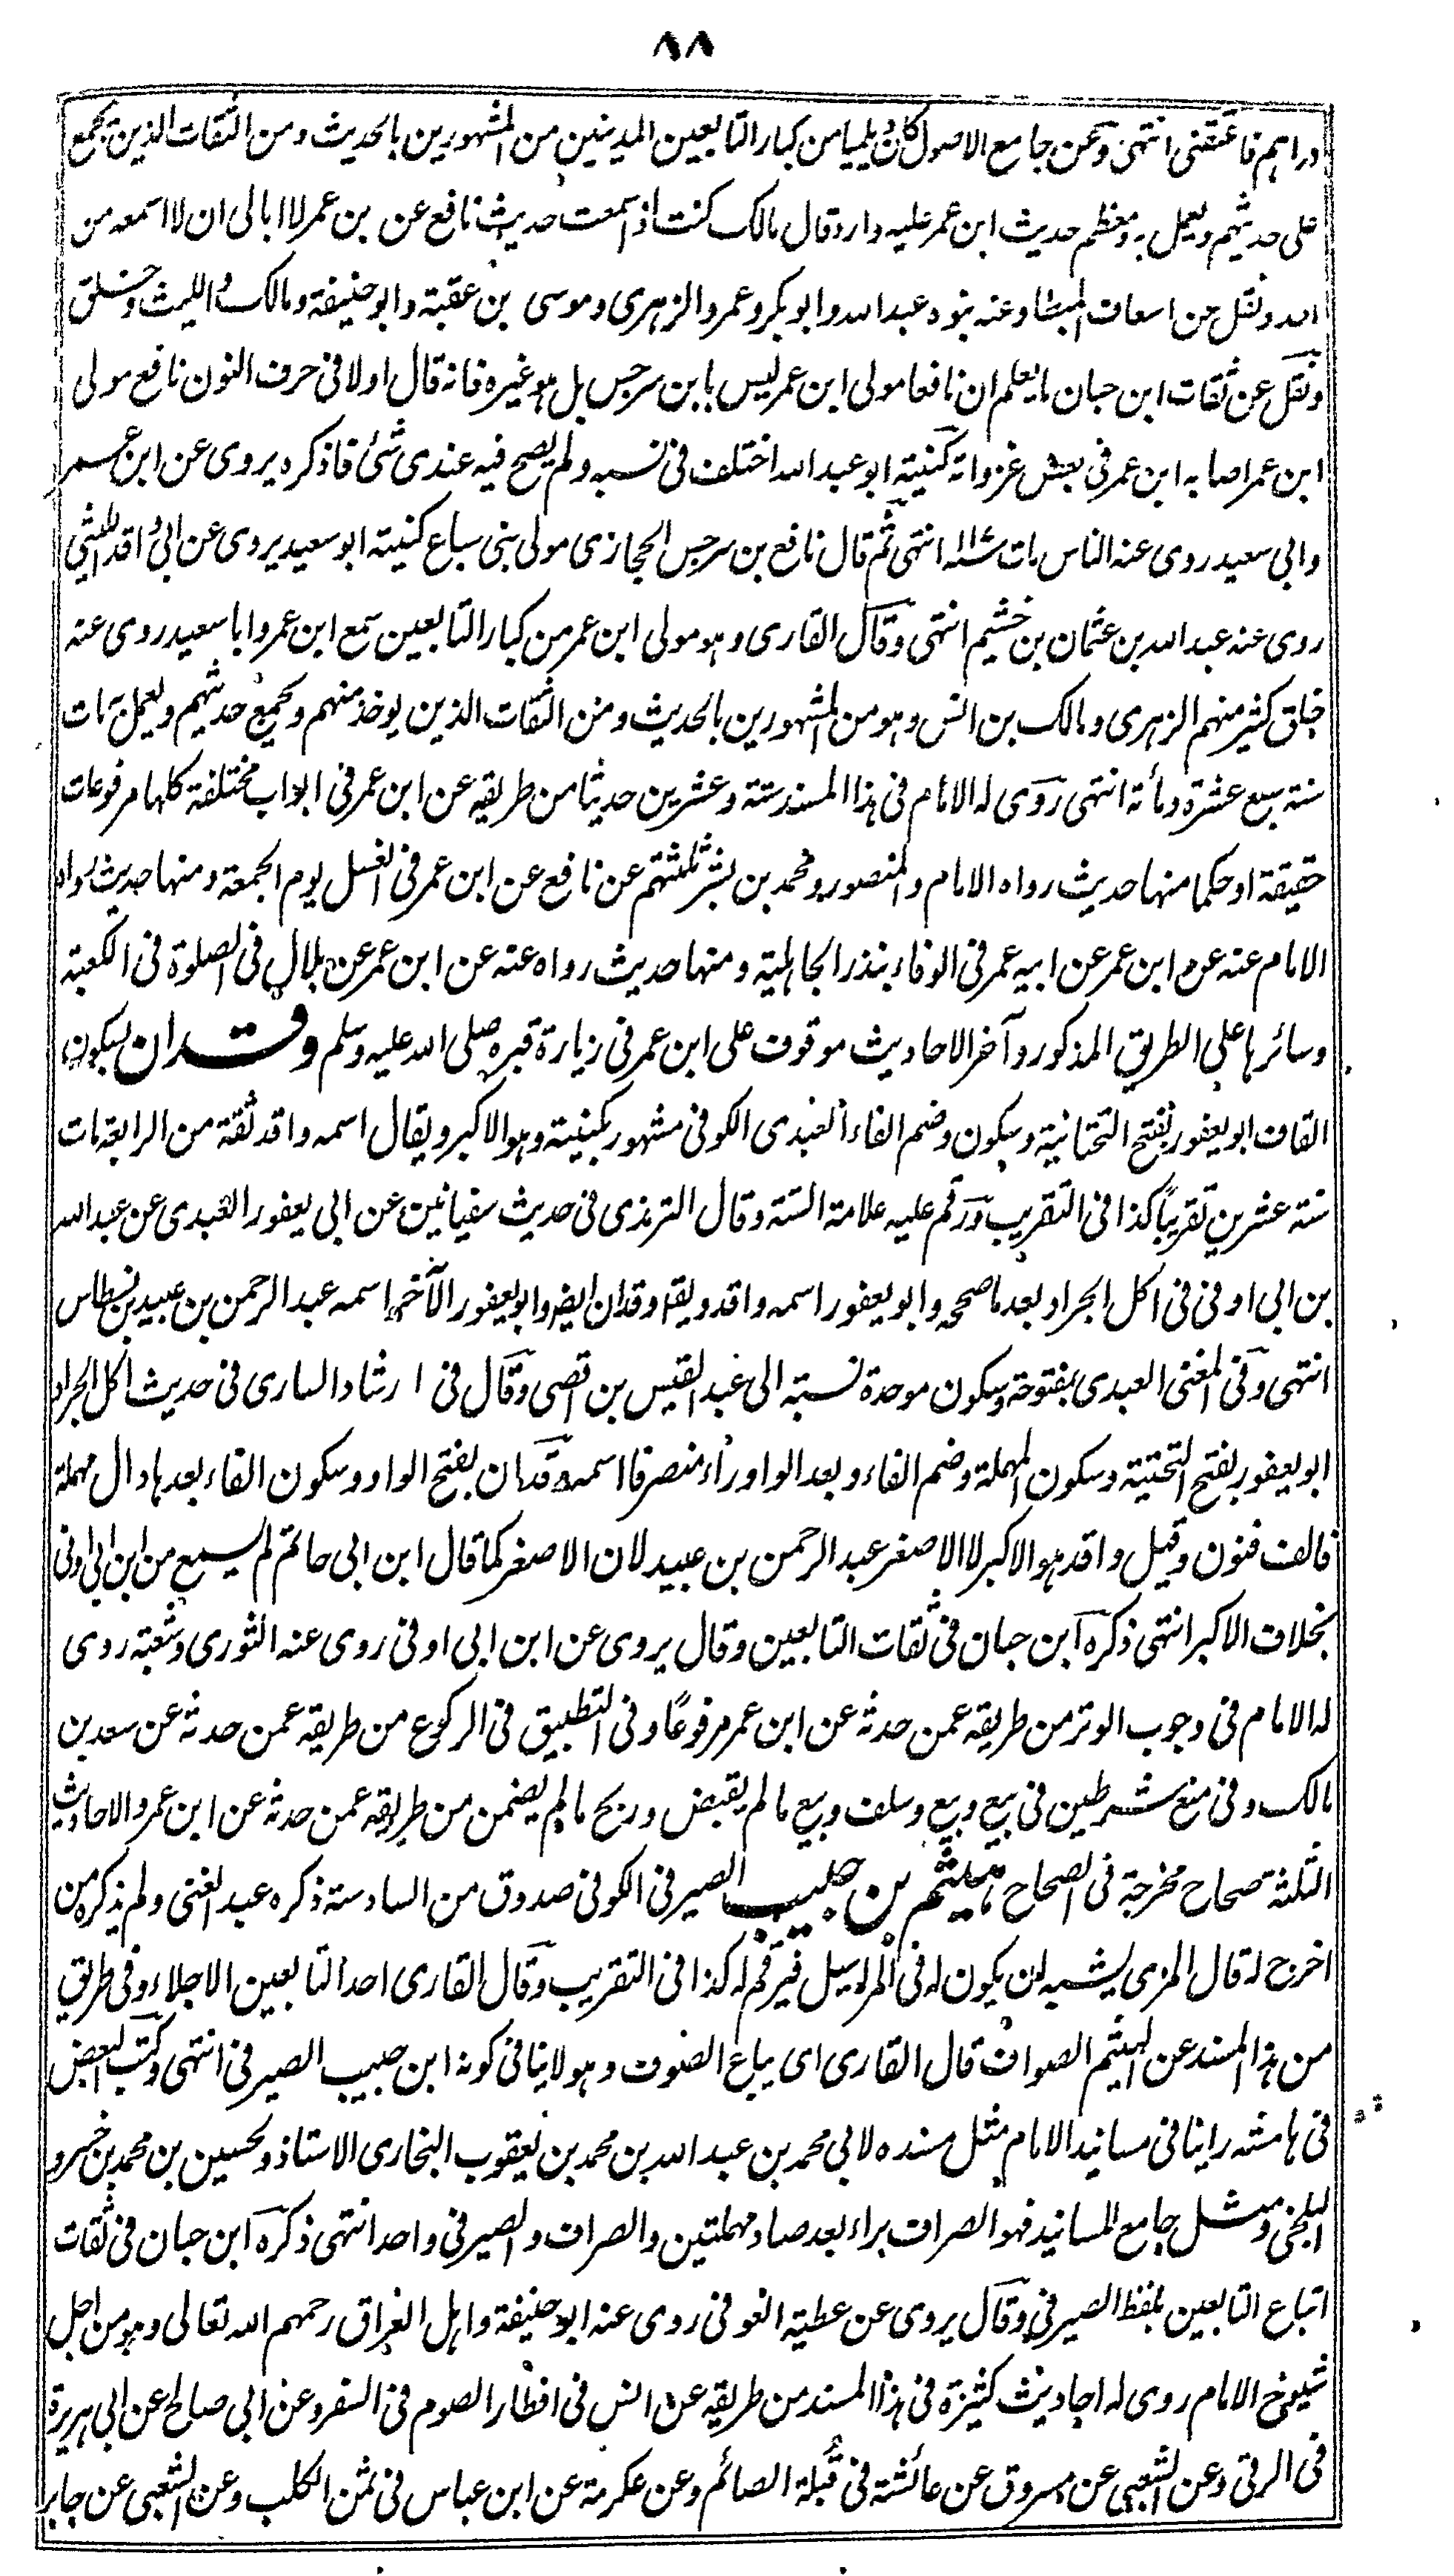 ٨٨
دراهم فاعتقنى انتهى وعن جامع الاصول كان ديلميا من كبار التابعين المدينين من المشهورين بالحديث ومن الثقات الذين يجمع
على حديثهم ويعمل به ومعظم حديث ابن عمر عليه دار وقال مالك كنت اذا سمعت حديث نافع عن بن عمر لا ابالى ان لا اسمعه من
احد ونقل عن اسعاف المبطا وعنه بنوه عبد الله وابو بكر وعمر والزهرى وموسى بن عقبة وابو حنيفة ومالك والليث وخلق
ونقل عن ثقات ابن حبان ما يعلم ان نافعا مولى ابن عمر ليس بابن سرجس بل هو غيره فانه قال اولا فى حرف النون نافع مولى
ابن عمر اصابه ابن عمر فى بعض غزواته كنيته ابو عبد الله اختلف فى نسبه ولم يصح فيه عندى شئ فاذكره يروى عن ابن عمر
وابى سعيد روى عنه الناس مات سنة انتهى ثم قال نافع بن سرجس الحجازى مولى بنى سباع كنيته ابو سعيد يروى عن ابى واقد الليثى
روى عنه عبد الله بن عثمان بن خثيم انتهى وقال القارى وهو مولى ابن عمر من كبار التابعين سمع ابن عمر وابا سعيد روى عنه
خلق كثير منهم الزهرى ومالك بن انس وهو من المشهورين بالحديث ومن الثقات الذين يوخذ منهم ويجمع حديثهم ويعمل به مات
سنة سبع عشرة ومأته انتهى روى له الامام فى هذا المسند ستة وعشرين حديثا من طريقه عن ابن عمر فى ابواب مختلفة كلها مرفوعات
حقيقة او حكما منها حديث رواه الامام والمنصور ومحمد بن بشر ثلثتهم عن نافع عن ابن عمر فى الغسل يوم الجمعة ومنها حديث رواه
الامام عنه عن ابن عمر عن ابيه عمر فى الوفاء بنذر الجاهلية ومنها حديث رواه عنه عن ابن عمر عن بلال فى الصلوة فى الكعبة
وسائرها على الطريق المذكور وآخر الاحاديث موقوف على ابن عمر فى زيارة قبره صلى الله عليه وسلم وقدان بسكون
القاف ابو يعفور بفتح التحتانية وسكون وضم الفاء العبدى الكوفى مشهور بكنيته وهو الاكبر ويقال اسمه واقد ثقة من الرابعة مات
سنة عشرين تقريبًا كذا فى التقريب ورقم عليه علامة الستة وقال الترمذى فى حديث سفيانين عن ابى يعفور العبدى عن عبد الله
بن ابى اوفى فى اكل الجراد بعد ما صححه وابو يعفور اسمه واقد ويقا وقدان ايضا وابو يعفور الآخر اسمه عبد الرحمن بن عبيد بن نسطاس
انتهى وفى المغنى العبدى بمفتوحة وسكون موحدة نسبة الى عبد القيس بن اقصى وقال فى ارشاد السارى فى حديث اكل الجراد
ابو يعفور بفتح التحتية وسكون المهملة وضم الفاء وبعد الواو راء منصرفا اسمه وقدان بفتح الواو وسكون القاف بعدها دال مهملة
فالف فنون وقيل واقد هو الاكبر لا الاصغر عبد الرحمن بن عبيد لان الاصغر كما قال ابن ابى حاتم لم يسمع من ابن ابى اوفى
بخلاف الاكبر انتهى ذكره ابن حبان فى ثقات التابعين وقال يروى عن ابن ابى اوفى روى عنه الثورى وشعبة روى
له الامام فى وجوب الوتر من طريقه عمن حدثه عن ابن عمر مرفوعًا وفى التطبيق فى الركوع من طريقه عمن حدثه عن سعد بن
مالك وفى منع شرطين فى بيع وبيع وسلف وبيع ما لم يقبض وربح ما لم يضمن من طريقه عمن حدثه عن ابن عمر والاحاديث
الثلثة صحاح مخرجة فى الصحاح هيثم بن حبيب الصيرفى الكوفى صدوق من السادسة ذكره عبد الغنى ولم يذكر من
اخرج له قال المزى يشبه ان يكون له فى المراسيل فيرقم له كذا فى التقريب وقال القارى احد التابعين الاجلاء وفى طريق
من هذا المسند عن الهيثم الصواف قال القارى اى بياع الصوف وهو لا ينافى كونه ابن حبيب الصيرفى انتهى وكتب البعض
فى هامشه راينا فى مسانيد الامام مثل مسنده لابى محمد بن عبد الله بن محمد بن يعقوب البخارى الاستاذ ولحسين بن محمد بن خسرو
البلخى ومثل جامع المسانيد فهو الصراف براء بعد صاد مهملتين والصراف والصيرفى واحد انتهى ذكره ابن حبان فى ثقات
اتباع التابعين بلفظ الصيرفى وقال يروى عن عطية العوفى روى عنه ابو حنيفة واهل العراق رحمهم الله تعالى وهو من اجل
شيوخ الامام روى له احاديث كثيرة فى هذا المسند من طريقه عن انس فى افطار الصوم فى السفر وعن ابى صالح عن ابى هريرة
فى الرقى وعن الشعبى عن مسروق عن عائشة فى قبلة الصائم وعن عكرمة عن ابن عباس فى ثمن الكلب وعن الشعبى عن جابر